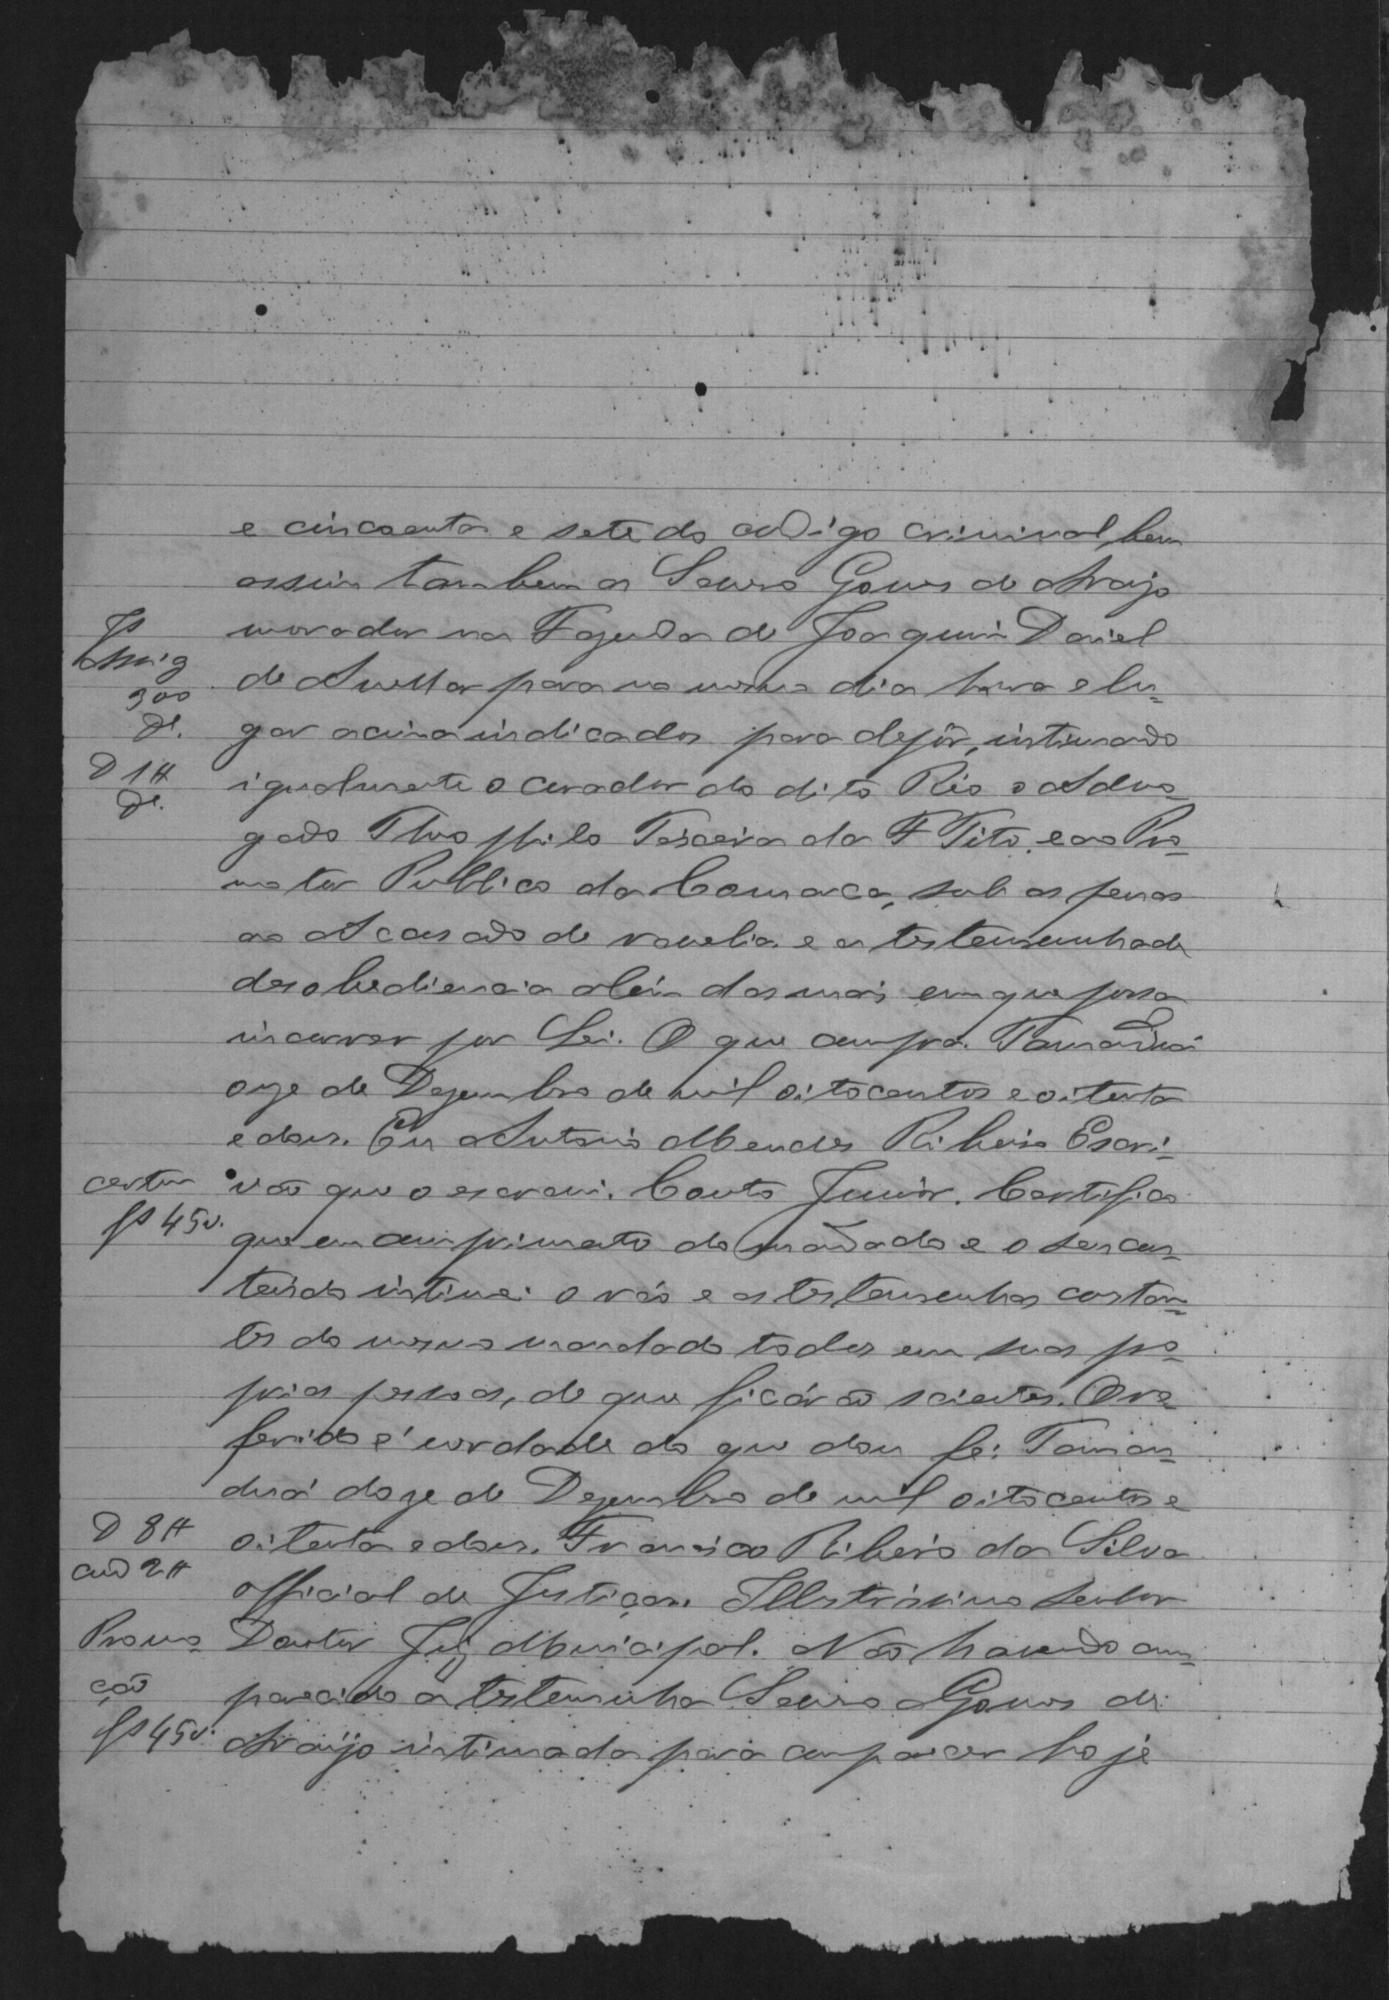 e cincoenta e sete do codigo criminal, bem
assim tambem a Lauro Gomes de Araujo
morador na Fazenda de Joaquim Daniel
de Avellar para no mesmo dia hora e lu-
gar acima indicados para depôr, intimando
igualmente o curador do dito Réo o Advo-
gado Theophilo Teixeira da F Tito, e ao Pro-
motor Publico da Comarca, sub as penas
ao Accusado de revelia e a testemunha de
desobediencia além das mais em que possa
incorrer por Lei. O que cumpra. Tamanduá
onze de Dezembro de mil oitocentos e oitenta
e dous. Eu Antonio Mendes Ribeiro Escri-
vão que o escrevi. Couto Junior. Certifico
que em cumprimento do mandado e o seu con-
teúdo intimei o réo e as testemunhas constan-
tes do mesmo mandado todos em suas pro-
prias pessoas, de que ficárão scientes. O re-
ferido é verdade do que dou fé. Taman-
duá doze de Dezembro de mil oitocentos e
oitenta e dous. Francisco Ribeiro da Silva
official de Justiça. Illustrissimo Senhor
Doutor Juiz Municipal. Não havendo com-
parecido a testemunha Lauro Gomes de
Araujo intimada para comparecer hoje
Assig
300
D 1#
certm
fs 45v.
D 8#
cud 2#
Promo-
ção
fs 45v.